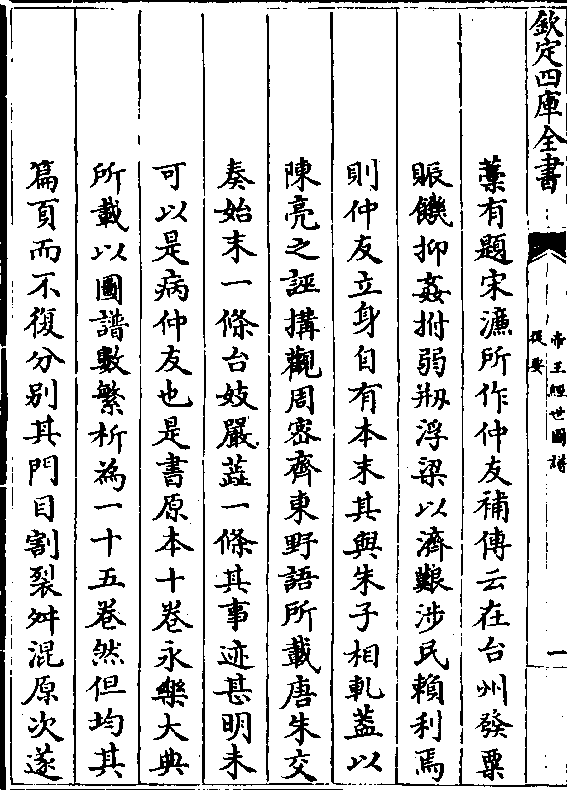 欽定四庫全書
帝王經世圖譜
提要
一
藁有題宋濂所作仲友補傳云在台州發粟
賑饑抑姦拊弱刱浮梁以濟艱涉民賴利焉
則仲友立身自有本末其與朱子相軋蓋以
陳亮之誣搆觀周密齊東野語所載唐朱交
奏始末一條台妓嚴蕋一條其事迹甚明未
可以是病仲友也是書原本十卷永樂大典
所載以圖譜數繁析為一十五卷然但均其
篇頁而不復分别其門目割裂舛混原次遂